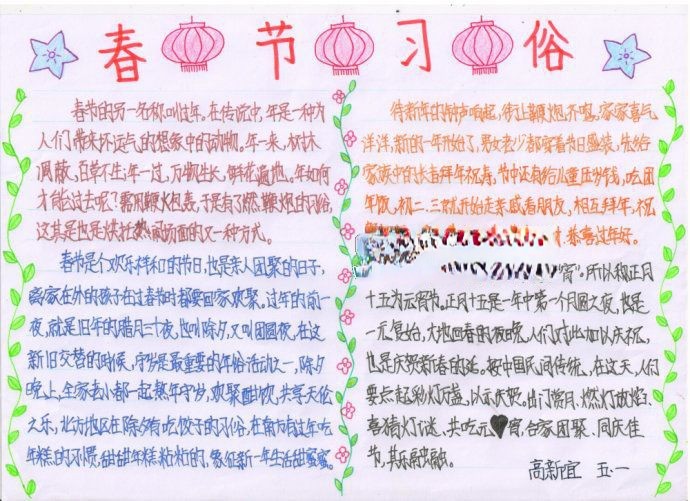 春节习俗
春节的另一名称叫过年。在传说中,年是一种为
人们带来坏运气的想象中的动物。年一来,树木
凋蔽,百草不生;年一过,万物生长,鲜花遍地。年如何
才能过去呢?需用鞭炮轰,于是有了燃鞭炮的习俗,
这其是也是烘托热闹场面的又一种方式。
春节是个欢乐祥和的节日,也是亲人团聚的日子,
离家在外的孩子在过春节时都要回家欢聚。过年的前一
夜,就是旧年的腊月三十夜,也叫除夕,又叫团圆夜,在这
新旧交替的时候,守岁是最重要的年俗活动之一,除夕
晚上,全家老小都一起熬年守岁,欢聚酣饮,共享天伦
之乐,北方地区在除夕有吃饺子的习俗,在南方有过年吃
年糕的习惯,甜甜年糕粘粘的,象征新一年生活甜蜜蜜。
待新年的钟声响起,街上鞭炮齐鸣。家家喜气
洋洋,新的一年开始了,男女老少都穿着节日盛装,先给
家族中的长者拜年祝寿,节中还有给儿童压岁钱,吃团
年饭,初二、三就开始走亲戚看朋友,相互拜年,祝
恭喜过年好。
宵"。所以称正月
十五为元宵节。正月十五是一年中第一个月圆之夜,也是
一元复始,大地回春的夜晚,人们对此加以庆祝,
也是庆贺新春的延。按中国民间传统,在这天,人们
要点起彩灯万盏,以示庆贺。出门赏月、燃灯放焰、
喜猜灯谜、共吃元宵,合家团聚、同庆佳
节,其乐融融。
高新宜 五·一